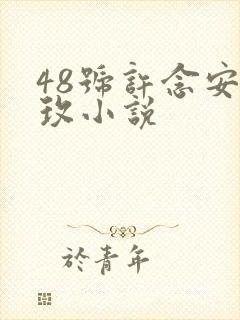 48號許念安
玫小說
於青年